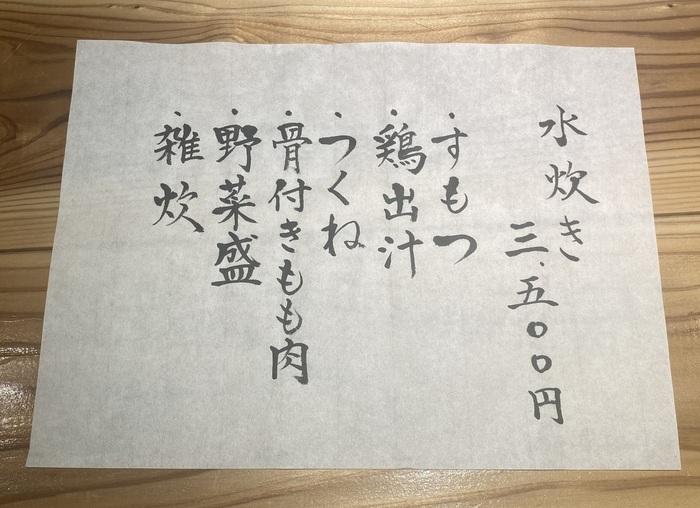 水炊き
三.五〇〇円
・すもつ
・鶏出汁
・つくね
・骨付きもも肉
・野菜盛
・雑炊